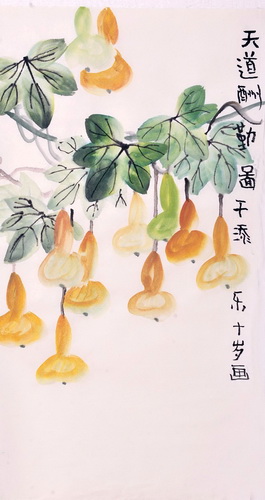 天道酬勤 图于添乐 十岁画